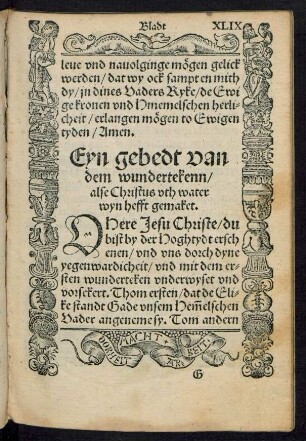 Bladt XLIX
leue vnd nauolginge mögen gelick
werden / dat wy ock sampt en mith
dy / jn dines Vaders Ryke / de Ewi
ge kronen vnd Hmemelschen herli-
cheit / erlangen mögen to Ewigen
tyden / Amen.
Eyn gebedt van
dem wundertekenn /
alse Christus vth water
wyn hefft gemaket.
O Here Jesu Christe / du
bist by der Hoghtydt ersch
enen / vnd vns dorch dyne
yegenwardicheit / vnd mit dem er-
sten wunderteken vnderwyset vnd
vorsekert. Thom ersten / dat de Eli-
ke standt Gade vnsem Hem̃elschen
Vader angeneme sy. Tom andern
MACHT
G